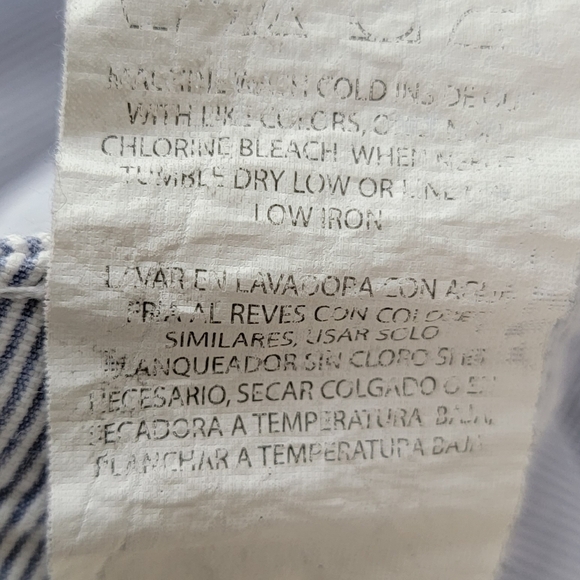 MACHINE WASH COLD INSIDE OUT
WITH LIKE COLORS,
CHLORINE BLEACH WHEN
TUMBLE DRY LOW OR LINE
LOW IRON
LAVAR EN LAVADORA CON AGUA
FRIA AL REVES CON COLORES
SIMILARES, USAR SOLO
BLANQUEADOR SIN CLORO SI ES
NECESARIO, SECAR COLGADO O EN
SECADORA A TEMPERATURA BAJA,
PLANCHAR A TEMPERATURA BAJA